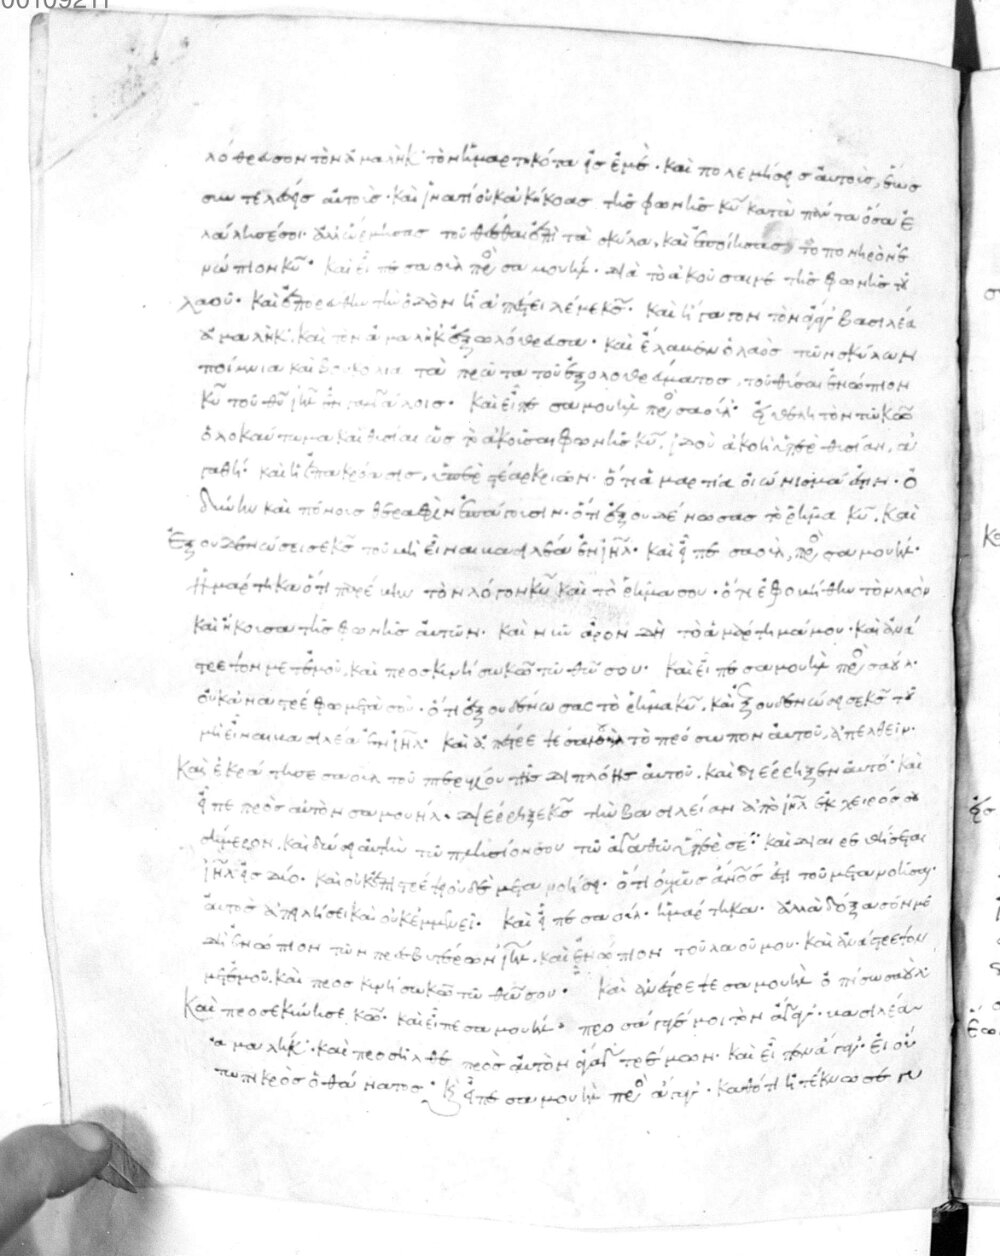 00109211
λόθρευσον τὸν ἀμαλὴκ· τὸν ἡμαρτηκότα εἰς ἐμέ· καὶ πολεμήσεις αὐτοὺς, ἕως
συντελέσης αὐτούς· καὶ ἱνατί οὐκ ἤκουσας τῆς φωνῆς κυ κατὰ πάντα ὅσα ἐ
λάλησέ σοι· ἀλλ ὥρμησας τοῦ θέσθαι ἐπὶ τὰ σκύλα, καὶ ἐποίησας τὸ πονηρὸν ἐ
νώπιον κυ· καὶ εἶπε σαουλ πρὸς σαμουήλ· διὰ τὸ ἀκοῦσαί με τῆς φωνῆς τοῦ
λαοῦ· καὶ ἐπορεύθην τὴν ὁδὸν ἣ ἀπέστειλέ με κς· καὶ ἤγαγον τὸν ἀγὰγ βασιλέα
ἀμαλὴκ· καὶ τὸν ἀμαλὴκ ἐξωλόθρευσα· καὶ ἔλαβεν ὁ λαὸς τῶν σκύλων
ποίμνια καὶ βουκόλια τὰ πρῶτα τοῦ ἐξολοθρεύματος, τοῦ θῦσαι ἐνώπιον
κυ τοῦ θυ ἡμῶν ἐν γαλγάλοις· καὶ εἶπε σαμουὴλ πρὸς σαούλ· εἰ θέλητὸν τῶ κω
ὁλοκαύτωμα καὶ θυσίαι ὡς τὸ ἀκοῦσαι φωνῆς κυ. ἰδοὺ ἀκοὴ ὑπὲρ θυσίαν, ἀ
γαθή· καὶ ἡ ἐπακρόασις, ὑπὲρ στέαρ κριῶν· ὅτι ἁμαρτία οἰώνισμά ἐστιν· ὀ
δύνην καὶ πόνους θεραφὶν ἐπάγουσιν· ὅτι ἐξουδένωσας τὸ ῥῆμα κυ, καὶ
ἐξουδενώσει σε κς τοῦ μὴ εἶναι βασιλέα ἐν ιηλ· καὶ εἶπε σαοὺλ, πρὸς σαμουήλ·
ἡμάρτηκα ὅτι παρέβην τὸν λόγον κυ καὶ τὸ ῥῆμα σου· ὅτι ἐφοβήθην τὸν λαὸν
καὶ ἤκουσα τῆς φωνῆς αὐτῶν· καὶ νῦν ἆρον δὴ τὸ ἁμάρτημά μου· καὶ ἀνά
στρεψον μετ ἐμοῦ, καὶ προσκυνήσω κω τῶ θω σου· καὶ εἶπε σαμουὴλ πρὸς σαούλ·
οὐκ ἀναστρέφω μετὰ σοῦ· ὅτι ἐξουδένωσας τὸ ῥῆμα κυ, καὶ ἐξουδενώσει σε κς τοῦ
μὴ εἶναι βασιλέα ἐν ιηλ· καὶ ἀπέστρεψε σαμουὴλ τὸ πρόσωπον αὐτοῦ, ἀπελθεῖν·
καὶ ἐκράτησε σαουλ τοῦ πτερυγίου τῆς διπλόης αὐτοῦ· καὶ διέρρηξεν αὐτό· καὶ
εἶπε πρὸς αὐτὸν σαμουήλ· διέρρηξε κς τὴν βασιλείαν ἀπὸ ιηλ ἐκ χειρός σου
σήμερον, καὶ δώσει αὐτὴν τῶ πλησίον σου τῶ ἀγαθῶ ὑπὲρ σέ· καὶ διαιρεθήσεται
ιηλ εἰς δύο· καὶ οὐκ ἐπιστρέψει οὐδὲ μεταμελήσει· ὅτι οὐχ ὡς ανος ἐστι τοῦ μεταμεληθῆναι·
αὐτὸς ἀπειλήσει καὶ οὐκ ἐμμενεῖ· καὶ εἶπε σαούλ· ἡμάρτηκα· ἀλλὰ δόξασόν με
δὴ ἐνώπιον τῶν πρεσβυτέρων ιηλ, καὶ ἐνώπιον τοῦ λαοῦ μου· καὶ ἀνάστρεψον
μετ ἐμοῦ, καὶ προσκυνήσω κω τῶ θω σου· καὶ ἀνέστρεψε σαμουὴλ ὀπίσω σαούλ·
καὶ προσεκύνησε κω· καὶ εἶπε σαμουήλ· προσαγάγετέ μοι τὸν ἀγάγ· βασιλέα
ἀμαλήκ· καὶ προσῆλθε πρὸς αὐτὸν ἀγὰγ τρέμων· καὶ εἶπεν ἀγάγ· εἰ οὕ
τω πικρὸς ὁ θάνατος; καὶ εἶπε σαμουὴλ πρὸς ἀγάγ· καθότι ἠτέκνωσε γυ